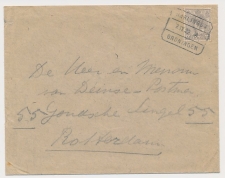 GRONINGEN
De Heer en Mevrouw
van Deense - Postma
55 Goudsche Singel 55
Rotterdam